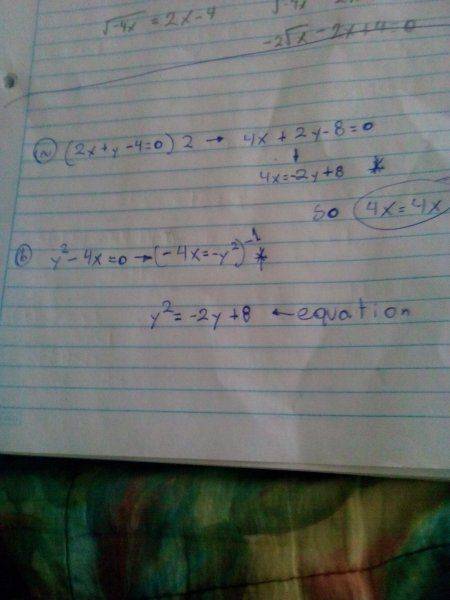 √-4x = 2x-4
-2√x - 2x+4=0
(a) (2x+y-4=0) 2 → 4x + 2y-8=0
↓
4x=-2y+8 *
so 4x=4x
(b) y²-4x=0 → (-4x=-y²)-1 *
y²=-2y+8 ← equation